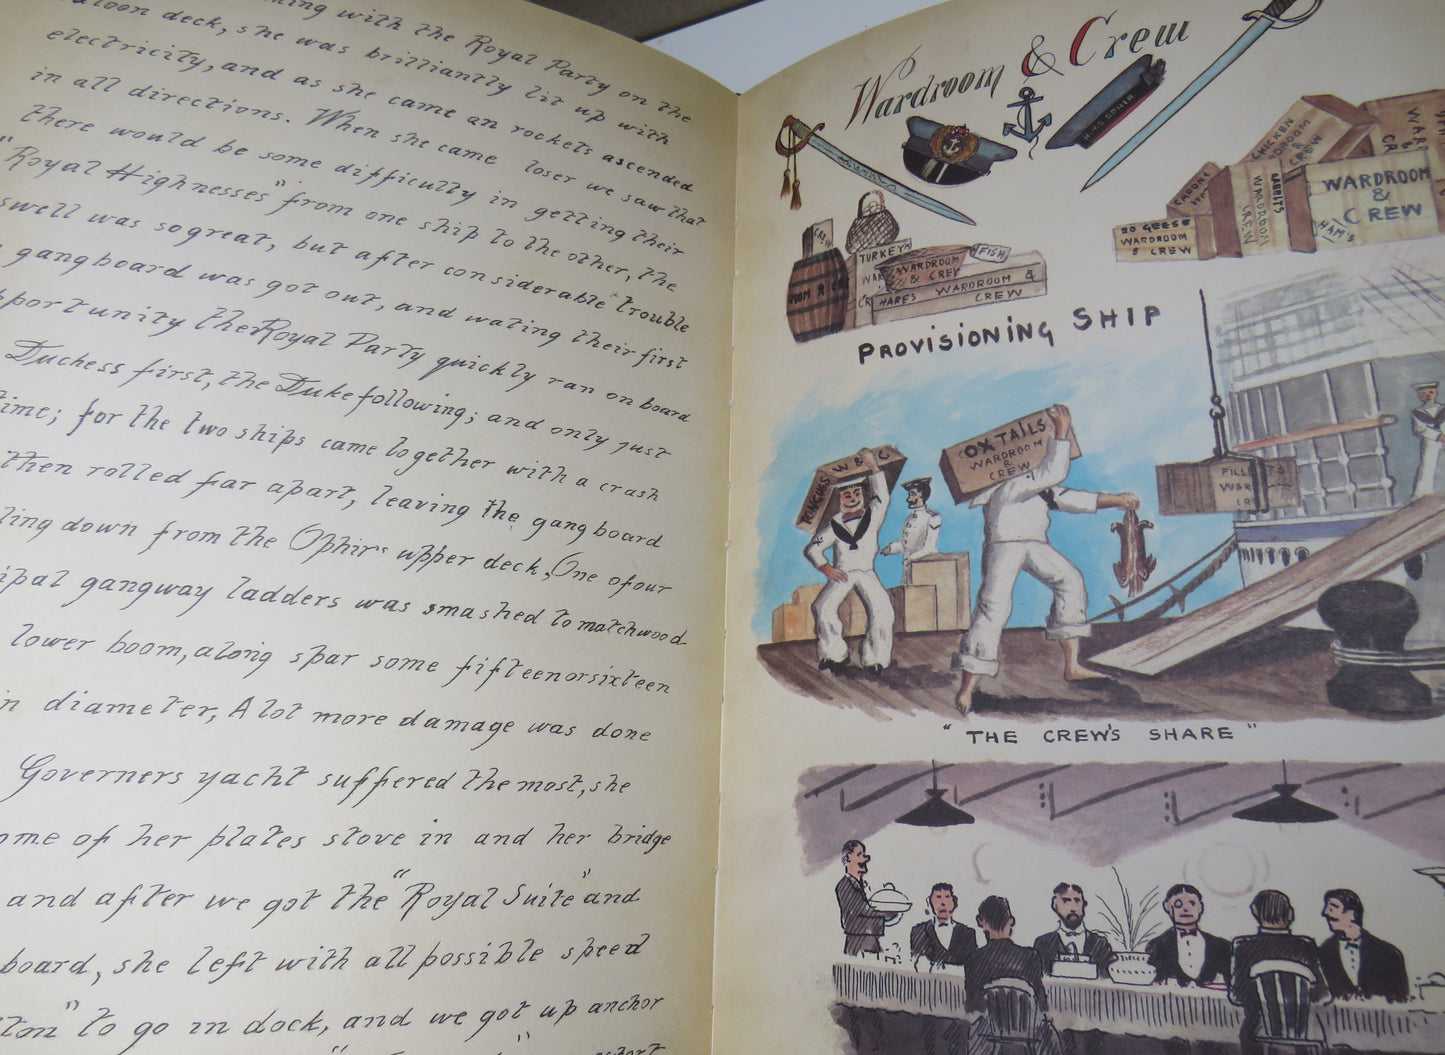 with the Royal Party on the
deck, she was brilliantly lit up with
electricity, and as she came an rockets ascended
in all directions. When she came loser we saw that
there would be some difficulty in getting their
"Royal Highnesses" from one ship to the other, the
swell was so great, but after considerable trouble
gangboard was got out, and wating their first
the Royal Party quickly ran on board
Duchess first, the Duke following; and only just
time; for the two ships came together with a crash
then rolled far apart, leaving the gangboard
down from the Ophir's upper deck, One of our
gangway ladders was smashed to matchwood
lower boom, along spar some fifteen or sixteen
in diameter, A lot more damage was done
Governers yacht suffered the most, she
of her plates stove in and her bridge
and after we got the "Royal Suite" and
board, she left with all possible speed
to go in dock, and we got up anchor
Wardroom & Crew
H.M.S OPHIR
CREW
TURKEY
WARDROOM
& CREW
FISH
HARES WARDROOM &
CREW
CHICKEN
& CREW
RABBITS
WARDROOM
20 GEESE
WARDROOM
& CREW
HAM'S
WARDROOM
&
CREW
PROVISIONING SHIP
TONGUES W & C
OXTAILS
WARDROOM
&
CREW
"THE CREW'S SHARE"